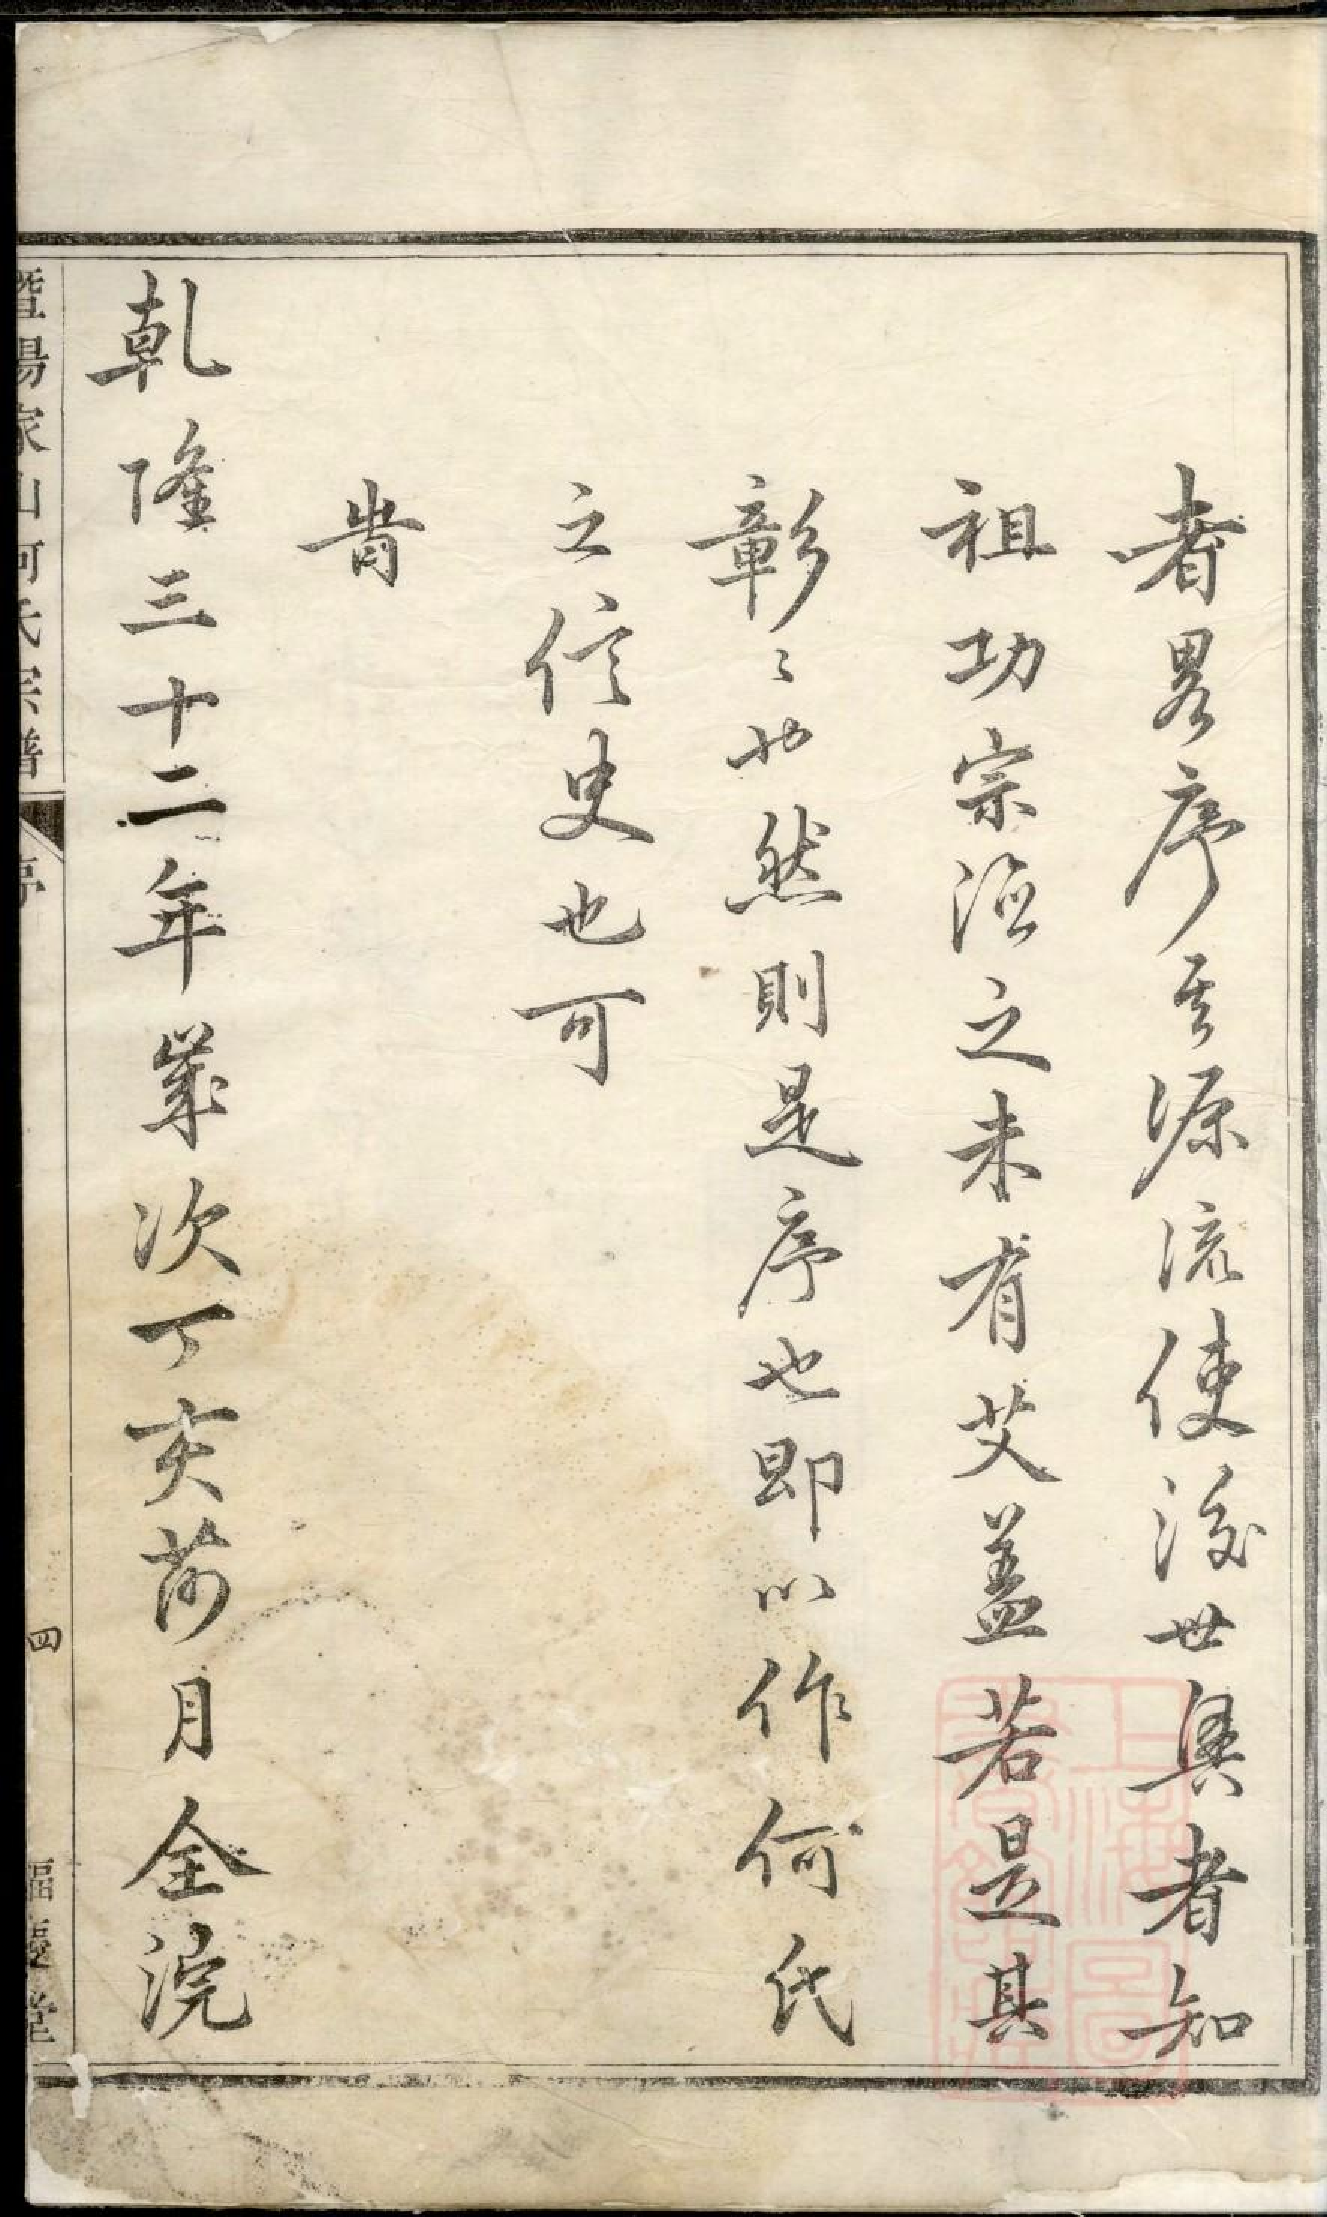 者畧序其源流使後世與者知
祖功宗德之未有艾蓋若是其
彰〻也然則是序也即以作何氏
之信史也可
旹
乾隆三十二年歲次丁亥荷月全浣
暨陽家山何氏宗譜
序
四
福慶堂
上海圖書館藏